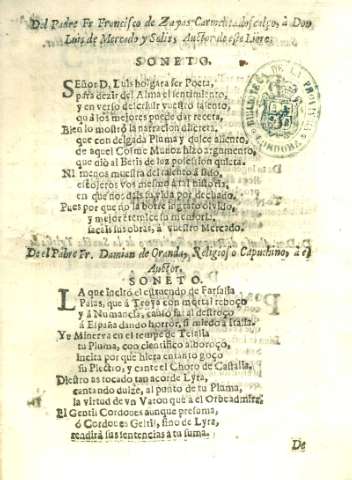 Del Padre Fr. Francisco de Zayas Carmelita descalço, à Don
Luis de Mercado y Solis, Auctor de este Libro.
SONETO.
SEñor D. Luis holgara ser Poeta,
para dezir del Alma el sentimiento,
y en verso descrivir vuestro talento,
quà los mejores puede dar receta,
Bien lo mostrò la narracion discreta,
que con delgada Pluma y dulce aliento,
de aquel Cosme Muñoz hizo argumento,
que diò al Betis de luz possession quieta.
Ni menos muestra del talento
Pues por que no la borre ingrato olvido,
y mejor
sea is sus obras, à vuestro Mercado.
De el Padre Fr. Damian de Granda, Religioso Capuchino, à el
Auctor.
SONETO.
LA que incitò el estruendo de Farsalia
Palas, que à Troya con mortal reboço
y à Numancia, causò fatal destroço
à España dando horror, si miedo à Italia.
Ye Minerva en el tempe de
tu Pluma, con cientifico alboroço,
incita por que hiera en tanto goço
su Plectro, y cante el Choro de Castalia.
Diestro as tocado tan acorde Lyra,
cantando dulze, al punto de tu Pluma,
la virtud de un Varon que à el Orbe admira.
El Gentil Cordoves aunque presuma,
ò Cordoves Gentil, sino de Lyra,
rendirà sus sentencias à tu suma.
De
BIBLIOTECA DE LA PROVINCIA
CORDOBA